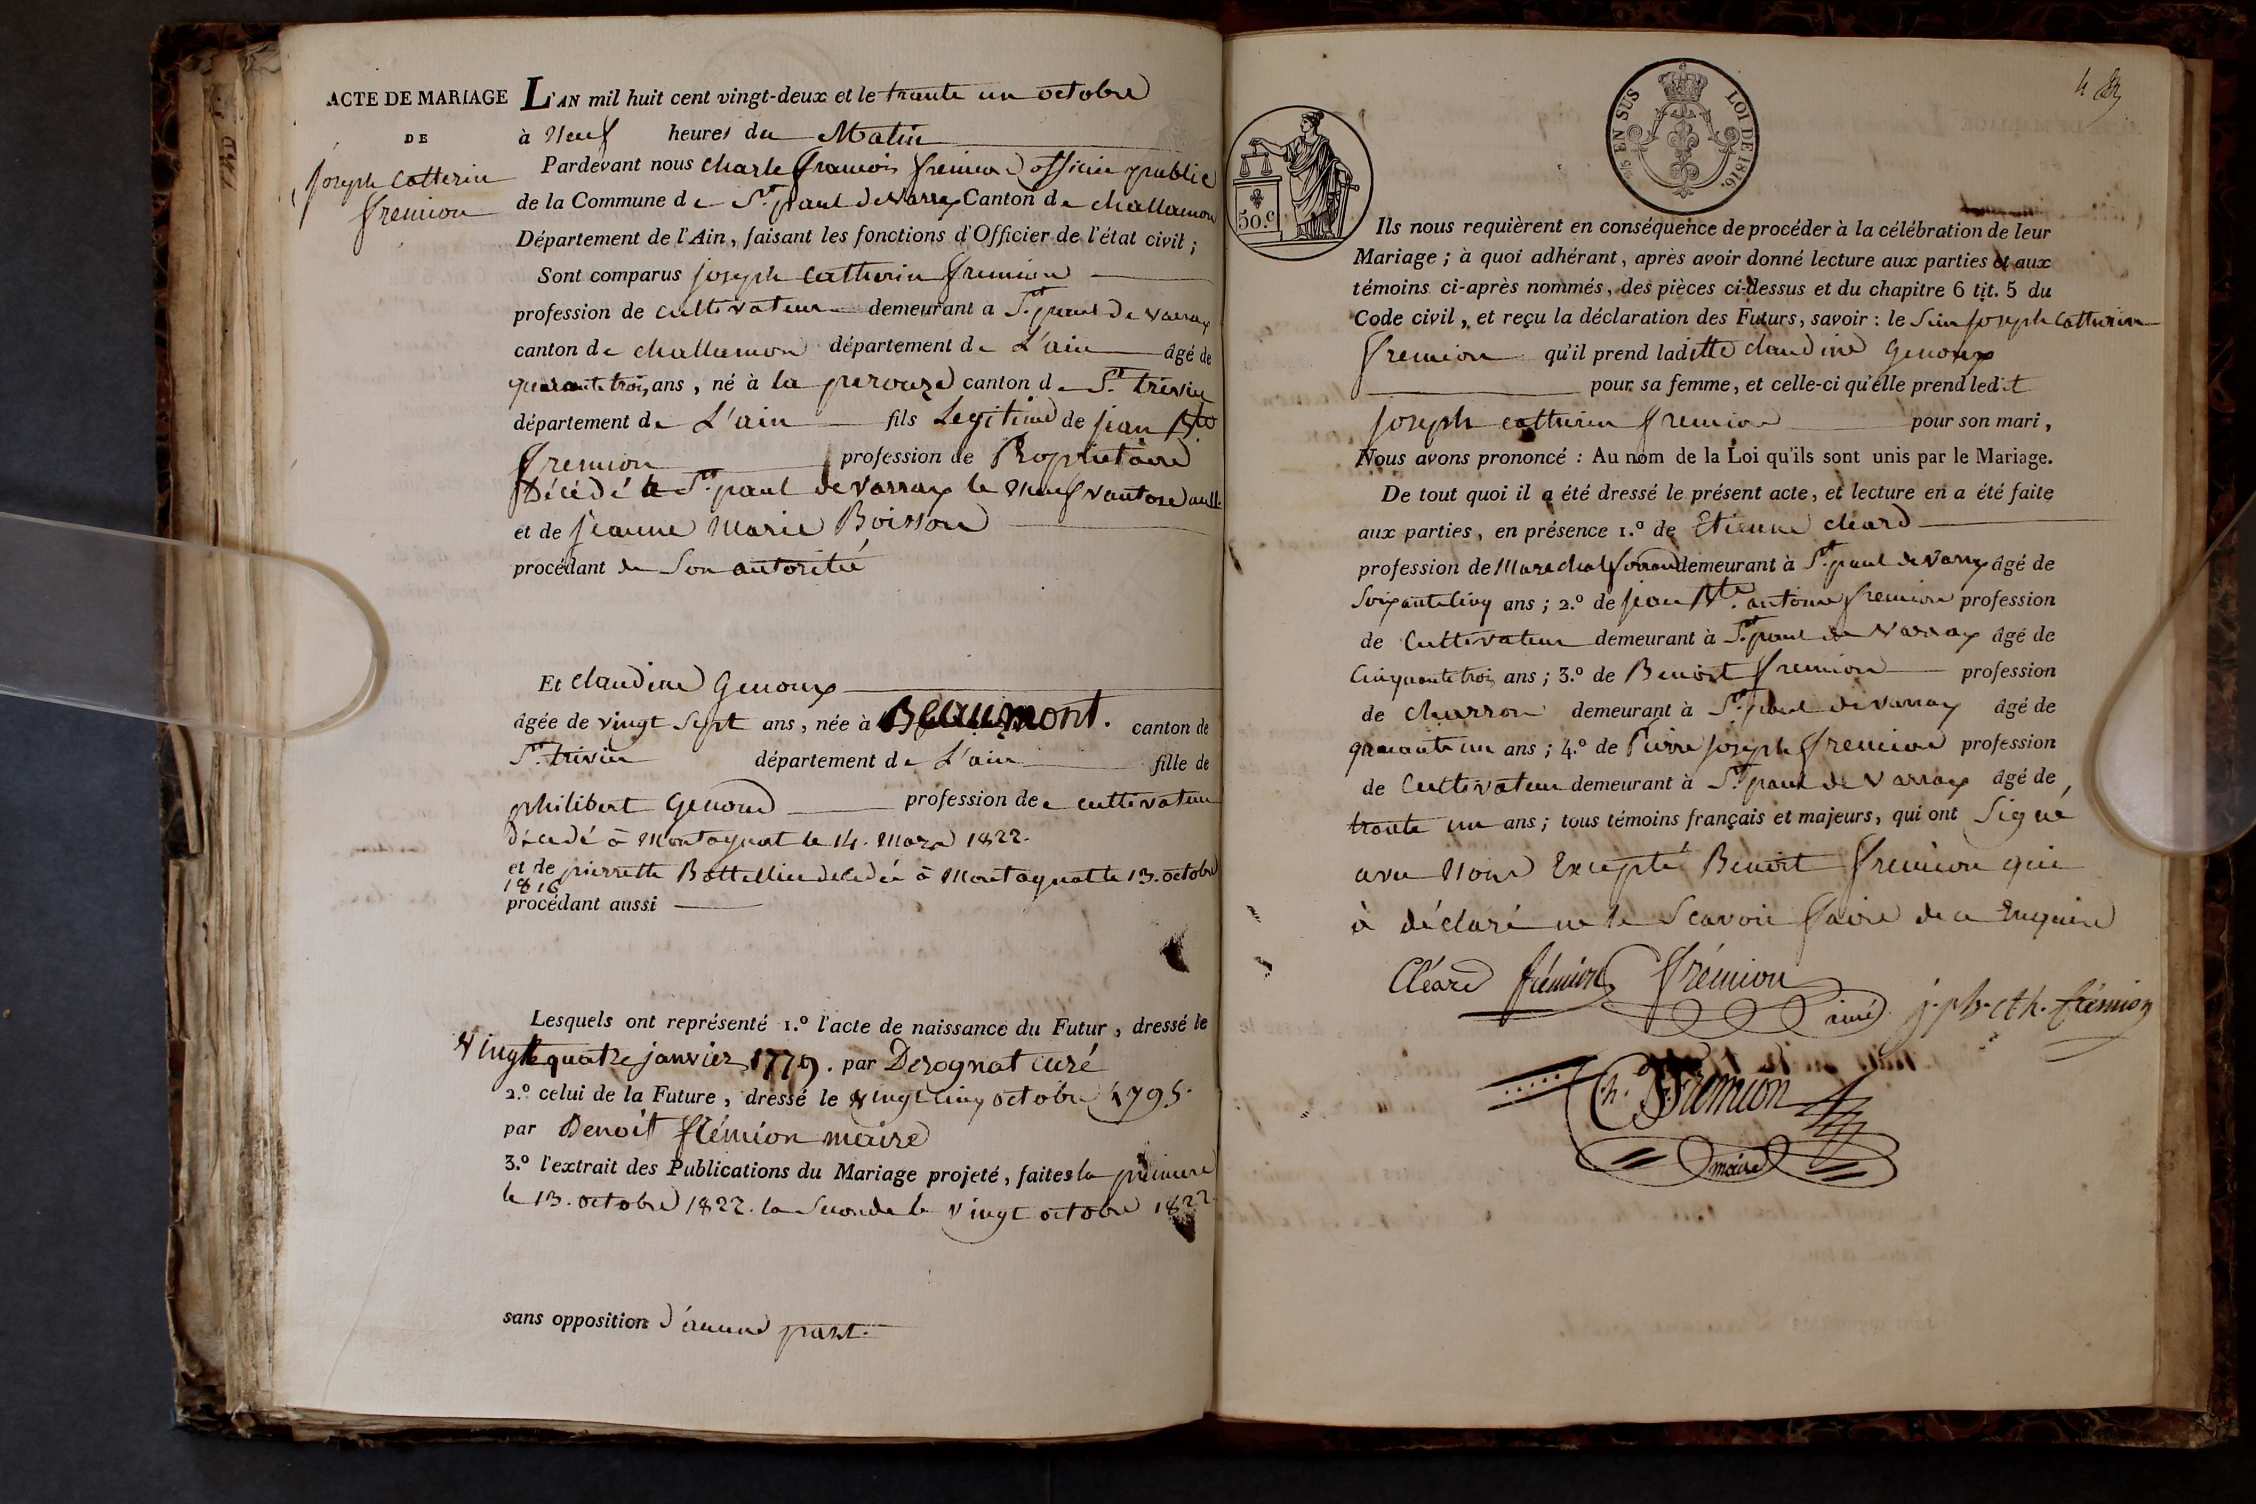 ACTE DE MARIAGE
DE
joseph Catterin
fremion
L'AN mil huit cent vingt-deux et le trante un octobre
à Neuf heures du Matin
Pardevant nous Charle françois fremion officier public
de la Commune de St. paul de Varrax Canton de challamon
Département de l'Ain, faisant les fonctions d'Officier de l'état civil;
Sont comparus joseph Catherin fremion
profession de cultivateur demeurant a St. paul de Varrax
canton de challamon département de L'ain âgé de
quarante trois ans, né à la perouze canton de St. trivier
département de L'ain fils Legitime de jean Bte
fremion profession de Proprietaire
Décédé à St. paul de Varrax le neuf vantose an
et de jeanne Marie Boisson
procédant de Son autorité
Et claudine Genoux
âgée de vingt Sept ans, née à Beaumont. canton de
St. trivier département de L'ain fille de
philibert Genoud profession de cultivateur
décédé à Montagnat le 14. Mars 1822.
et de pierrette décédée à Montagnat le 13. octobre
1816
procédant aussi
Lesquels ont représenté 1.º l'acte de naissance du Futur, dressé le
Vingt quatre janvier 1779. par Derognat curé
2.º celui de la Future, dressé le vingt cinq octobre 1795.
par Benoit frémion maire
3.º l'extrait des Publications du Mariage projeté, faites la premiere
le 13. octobre 1822. la Seconde le vingt octobre 1822
sans opposition d'aucune part.
EN SUS LOI DE 1816.
50.c
Ils nous requièrent en conséquence de procéder à la célébration de leur
Mariage; à quoi adhérant, après avoir donné lecture aux parties et aux
témoins ci-après nommés, des pièces ci-dessus et du chapitre 6 tit. 5 du
Code civil, et reçu la déclaration des Futurs, savoir: le Sieur joseph Catherin
fremion qu'il prend laditte claudine Genoux
pour sa femme, et celle-ci qu'elle prend ledit
joseph catherin fremion pour son mari,
Nous avons prononcé: Au nom de la Loi qu'ils sont unis par le Mariage.
De tout quoi il a été dressé le présent acte, et lecture en a été faite
aux parties, en présence 1.º de Etienne cléard
profession de Marechal demeurant à St. paul de Varrax âgé de
Soixante Cinq ans; 2.º de jean Bte. antoine fremion profession
de Cultivateur demeurant à St. paul de Varrax âgé de
Cinquante trois ans; 3.º de Benoit fremion profession
de charron demeurant à St. paul de Varrax âgé de
quarante un ans; 4.º de Pierre joseph fremion profession
de Cultivateur demeurant à St. paul de Varrax âgé de
trante un ans; tous témoins français et majeurs, qui ont Signé
avec Nous Excepté Benoit fremion qui
à déclaré ne le Scavoir faire de ce Enquis
Cléard frémion frémion ainé j. ph. cth. frémion
Ch. F. Fremion
maire